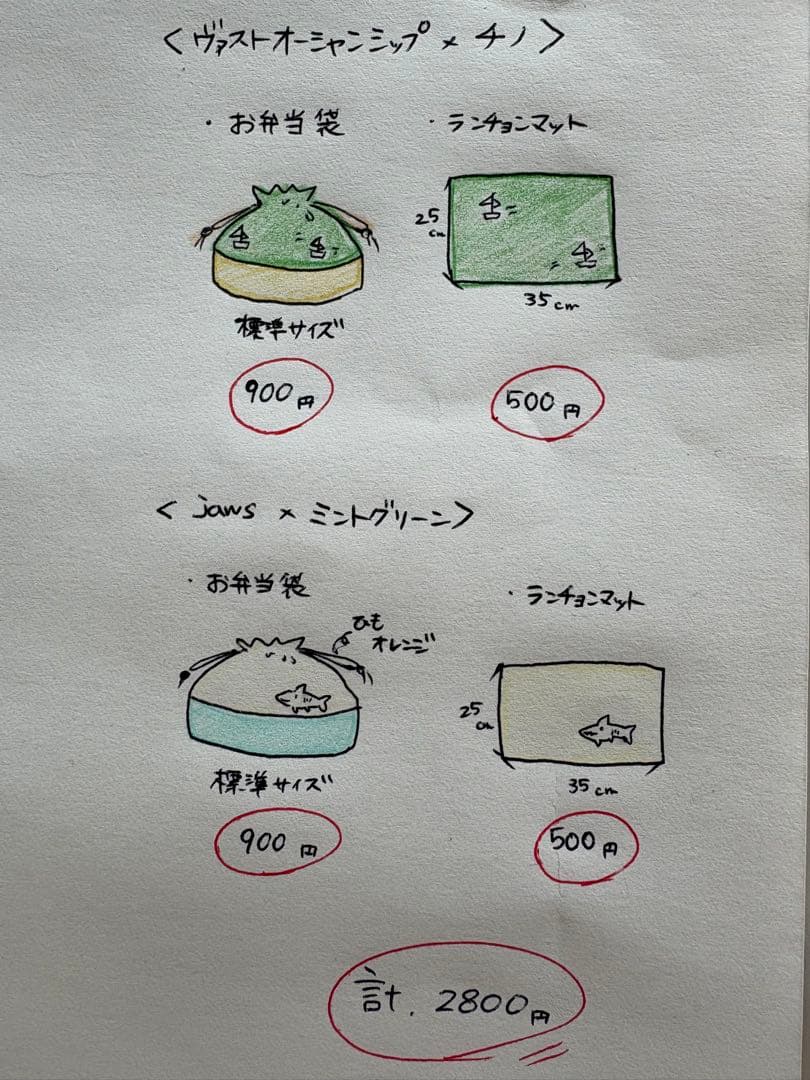 <ヴァストオーシャンシップ × チノ>
・お弁当袋
・ランチョンマット
25cm
35cm
標準サイズ
900円
500円
<jaws × ミントグリーン>
・お弁当袋
・ランチョンマット
ひも
オレンジ
25cm
35cm
標準サイズ
900円
500円
計. 2800円